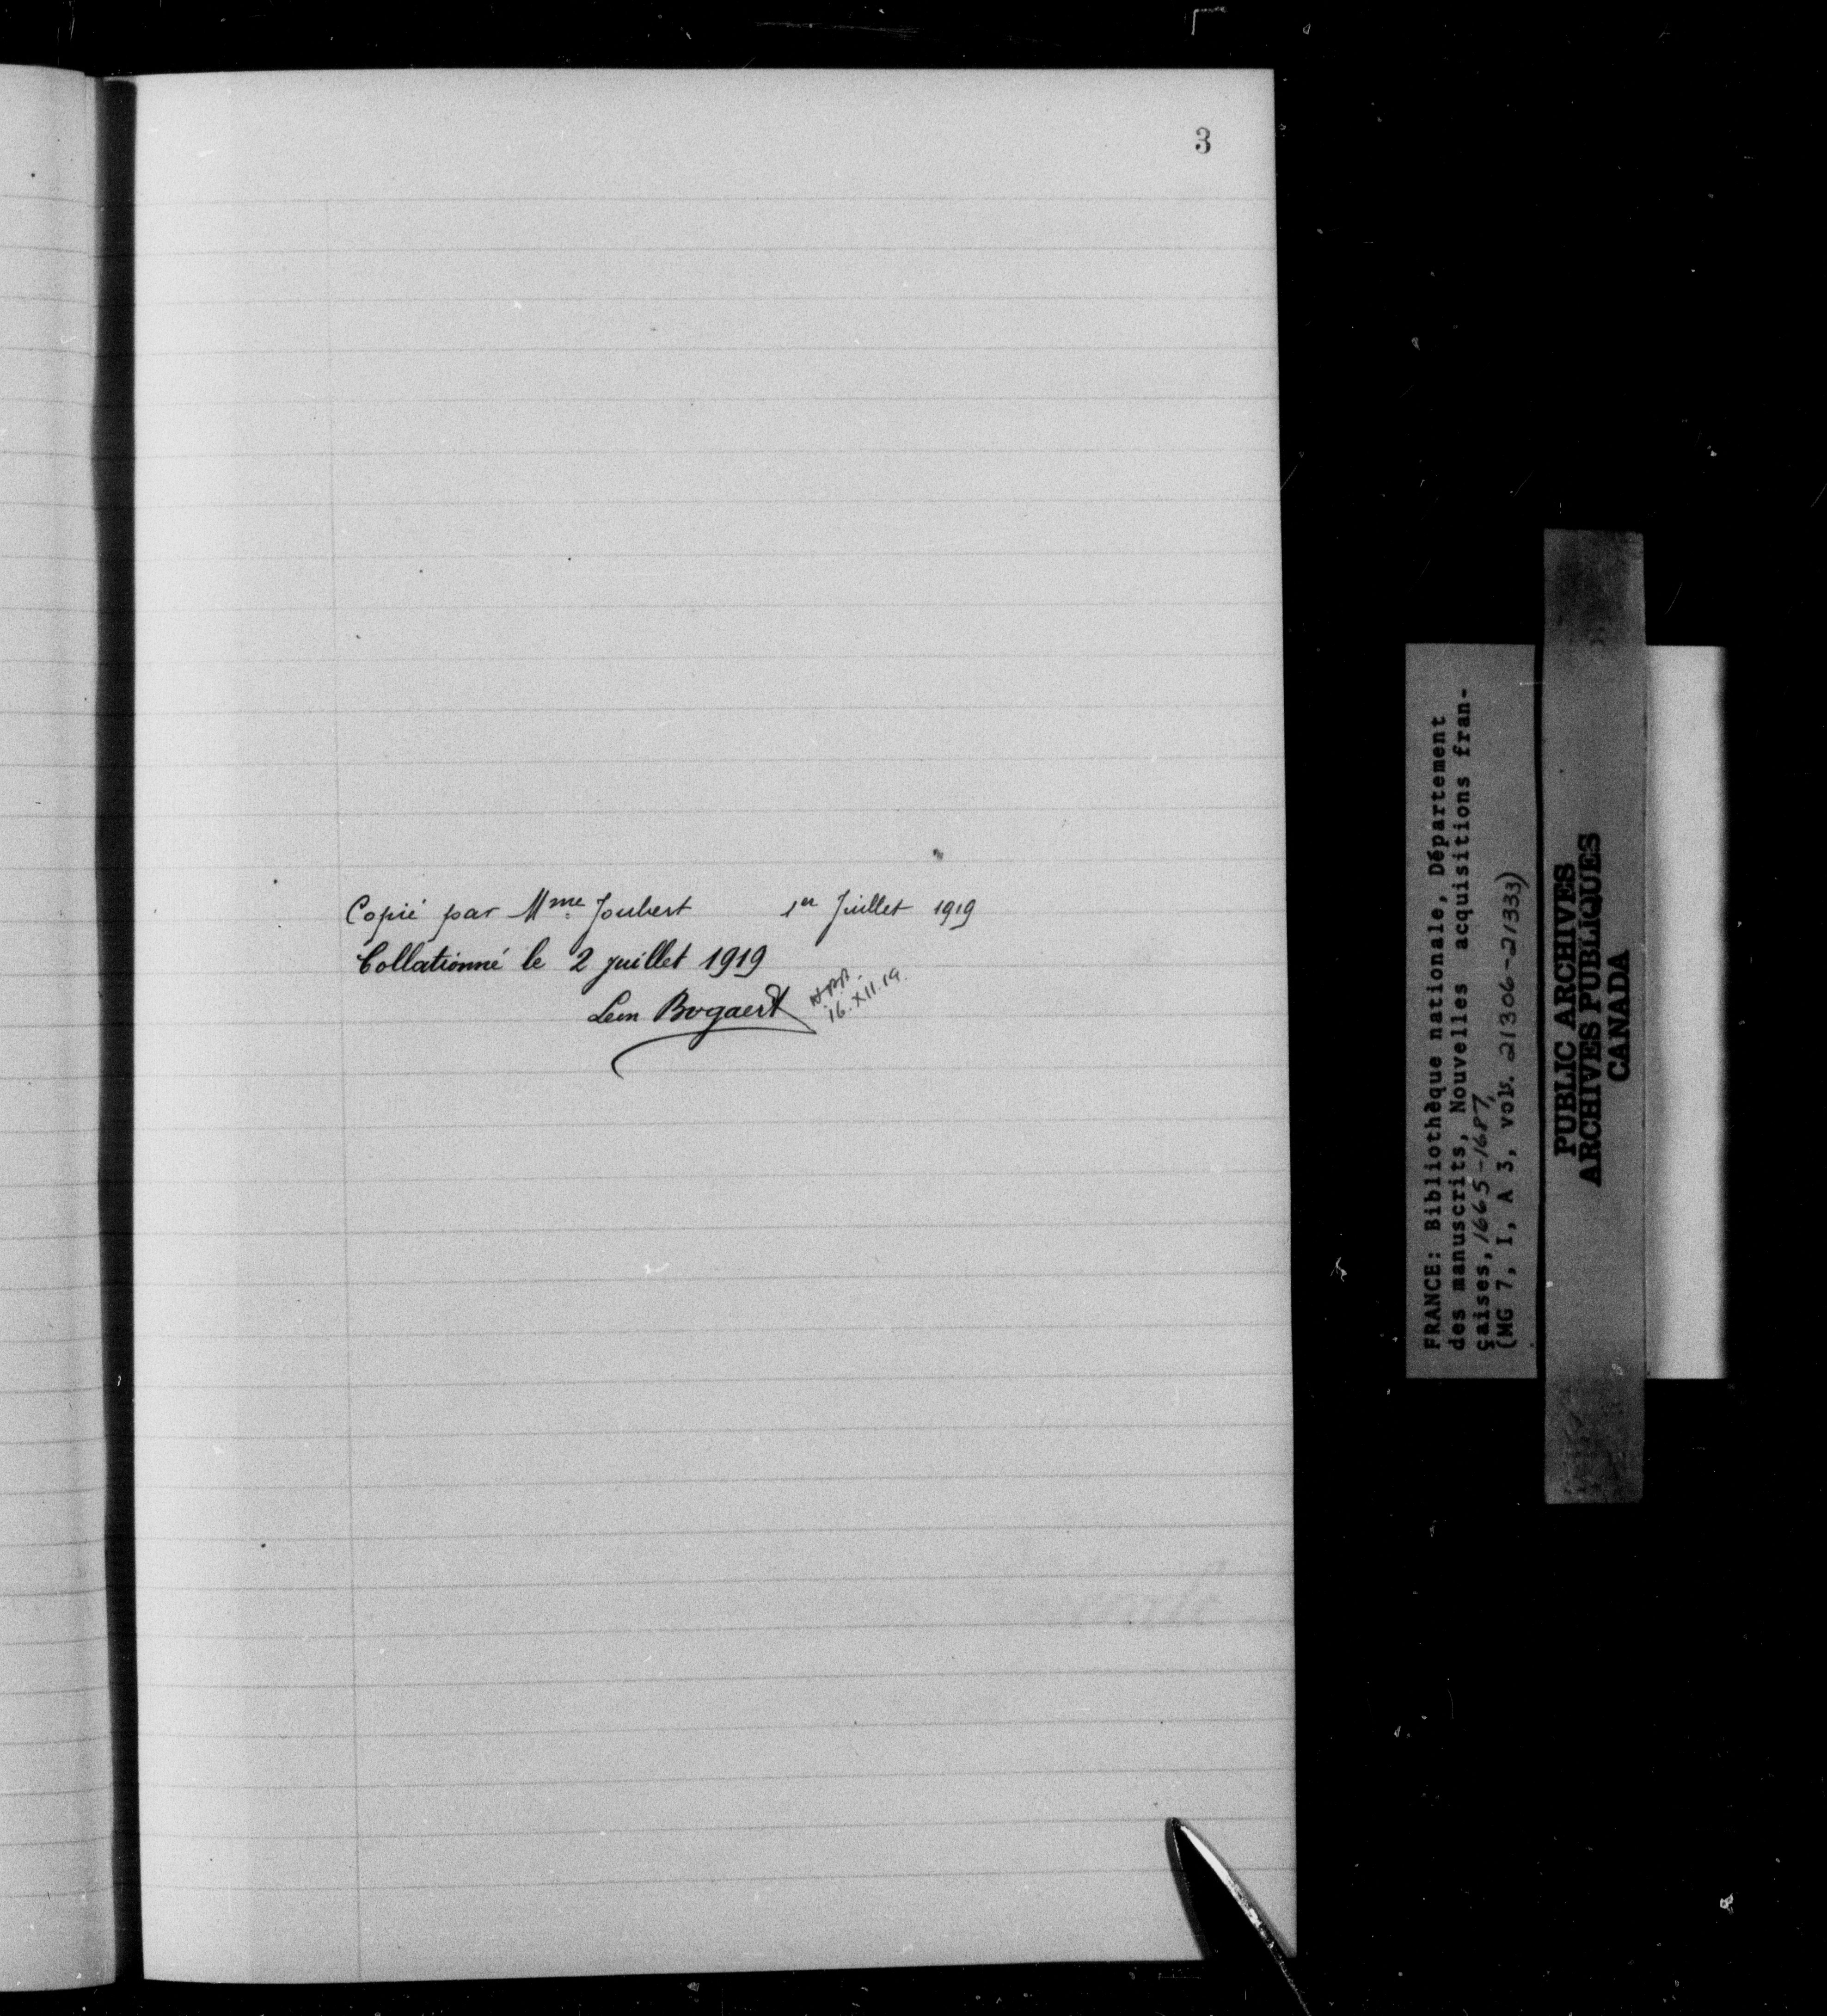 3
Copié par Mme Joubert 1er Juillet 1919
Collationné le 2 juillet 1919
Leon Bogaert
16.XII.19.
FRANCE: Bibliothèque nationale, Département
des manuscrits, Nouvelles acquisitions fran-
çaises, 1665-1687,
(MG 7, I, A 3, vols. 21306-21333)
PUBLIC ARCHIVES
ARCHIVES PUBLIQUES
CANADA